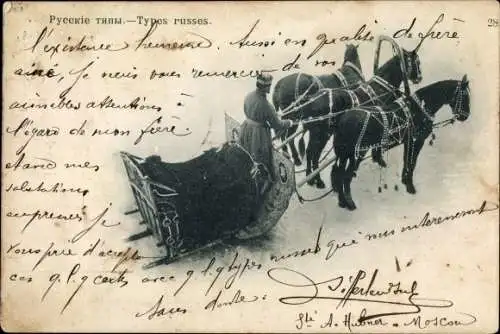 Русскіе типы.—Types russes.
28
l'existence humaine. Aussi en qualité de frère
aîné, je puis vous remercier des
aimables attentions à
l'égard de mon frère.
mes
salutations
empressées je
vous prie d'accepter
ces q.l.q. cartes avec q.l.q. types russes que vous intéresseront
sans doute.
Sté A. Hubner - Moscou